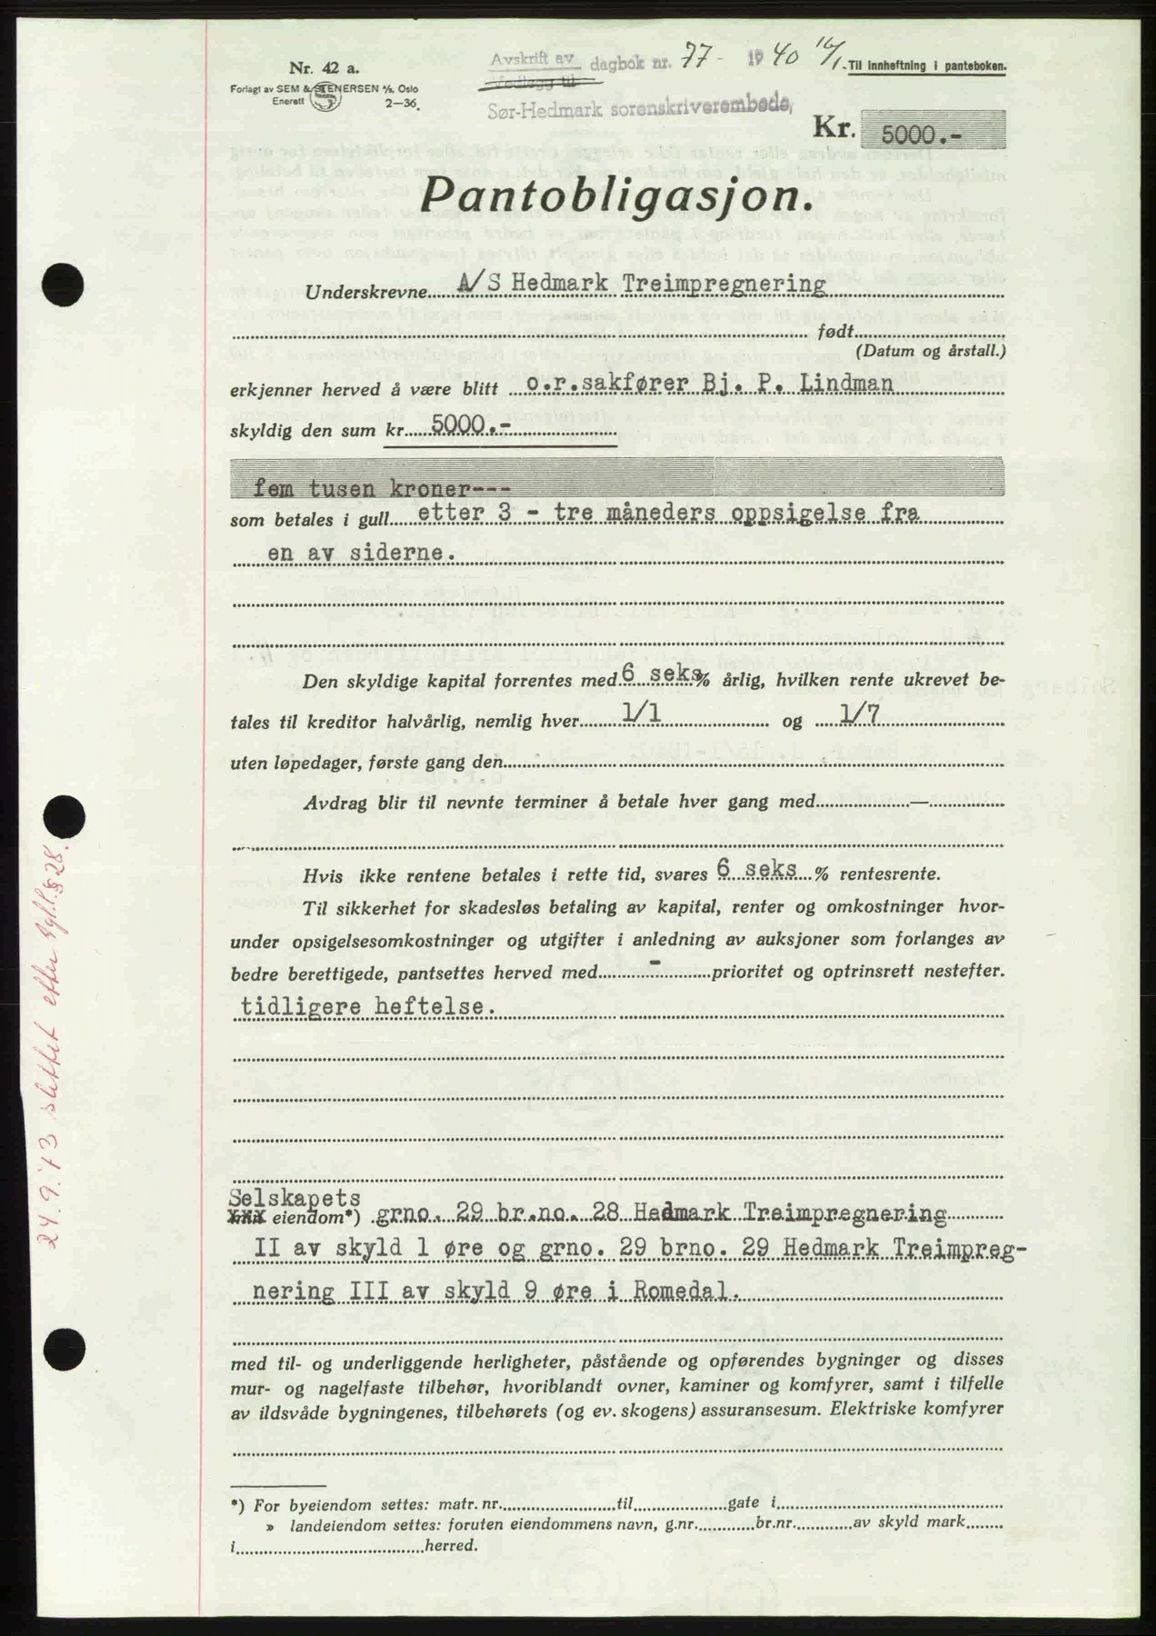 Nr. 42 a.
Forlagt av SEM & STENERSEN A/S, Oslo
Enerett 2—36.
Avskrift av dagbok nr. 77 - 1940 16/1.
Vedlegg til
Sør-Hedmark sorenskriverembede,
Til innheftning i panteboken.
Kr. 5000.-
Pantobligasjon.
Underskrevne A/S Hedmark Treimpregnering
født
(Datum og årstall.)
erkjenner herved å være blitt o.r.sakfører Bj. P. Lindman
skyldig den sum kr. 5000.-
fem tusen kroner---
som betales i gull etter 3 - tre måneders oppsigelse fra
en av siderne.
Den skyldige kapital forrentes med 6 seks % årlig, hvilken rente ukrevet be-
tales til kreditor halvårlig, nemlig hver 1/1 og 1/7
uten løpedager, første gang den
Avdrag blir til nevnte terminer å betale hver gang med —
Hvis ikke rentene betales i rette tid, svares 6 seks % rentesrente.
Til sikkerhet for skadesløs betaling av kapital, renter og omkostninger hvor-
under opsigelsesomkostninger og utgifter i anledning av auksjoner som forlanges av
bedre berettigede, pantsettes herved med - prioritet og optrinsrett nestefter.
tidligere heftelse.
Selskapets
xxx eiendom*) grno. 29 br.no. 28 Hedmark Treimpregnering
II av skyld 1 øre og grno. 29 brno. 29 Hedmark Treimpreg-
nering III av skyld 9 øre i Romedal.
med til- og underliggende herligheter, påstående og opførendes bygninger og disses
mur- og nagelfaste tilbehør, hvoriblandt ovner, kaminer og komfyrer, samt i tilfelle
av ildsvåde bygningenes, tilbehørets (og ev. skogens) assuransesum. Elektriske komfyrer
*) For byeiendom settes: matr. nr. til gate i
» landeiendom settes: foruten eiendommens navn, g.nr. br.nr. av skyld mark
i herred.
24.9.'73 slettet etter tgl.l. § 28.